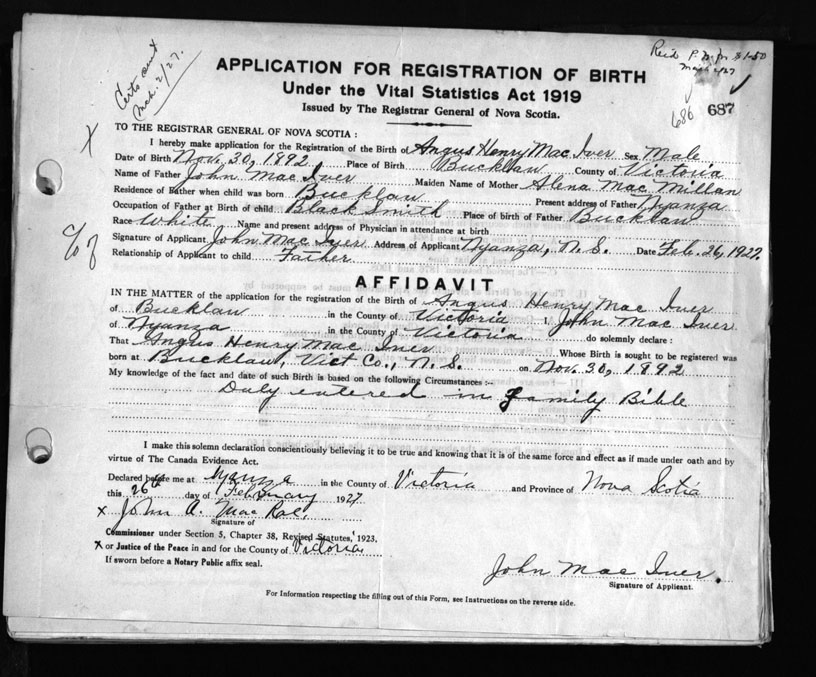 Certs sent
Mch. 2/27.
Rec'd P. N. for $1.50
Mch 2/27
APPLICATION FOR REGISTRATION OF BIRTH
Under the Vital Statistics Act 1919
Issued by The Registrar General of Nova Scotia.
686 687
X
TO THE REGISTRAR GENERAL OF NOVA SCOTIA :
I hereby make application for the Registration of the Birth of Angus Henry Mac Iver Sex Male
Date of Birth Nov. 30, 1892 Place of Birth Bucklaw County of Victoria
Name of Father John Mac Iver Maiden Name of Mother Alena Mac Millan
Residence of Father when child was born Bucklaw Present address of Father Nyanza
Occupation of Father at Birth of child Black Smith Place of birth of Father Bucklaw
Race White Name and present address of Physician in attendance at birth
Signature of Applicant John Mac Iver Address of Applicant Nyanza, N.S. Date Feb. 26, 1927.
Relationship of Applicant to child Father
AFFIDAVIT
IN THE MATTER of the application for the registration of the Birth of Angus Henry Mac Iver
of Bucklaw in the County of Victoria I, John Mac Iver
of Nyanza in the County of Victoria do solemnly declare :
That Angus Henry Mac Iver Whose Birth is sought to be registered was
born at Bucklaw, Vict Co., N.S. on Nov. 30, 1892
My knowledge of the fact and date of such Birth is based on the following Circumstances :-
Duly entered in Family Bible
I make this solemn declaration conscientiously believing it to be true and knowing that it is of the same force and effect as if made under oath and by
virtue of The Canada Evidence Act.
Declared before me at Nyanza in the County of Victoria and Province of Nova Scotia
this 26th day of February 1927
x John A. Mac Rae,
Signature of
Commissioner under Section 5, Chapter 38, Revised Statutes, 1923,
x or Justice of the Peace in and for the County of Victoria
If sworn before a Notary Public affix seal.
John Mac Iver.
Signature of Applicant.
For Information respecting the filling out of this Form, see Instructions on the reverse side.